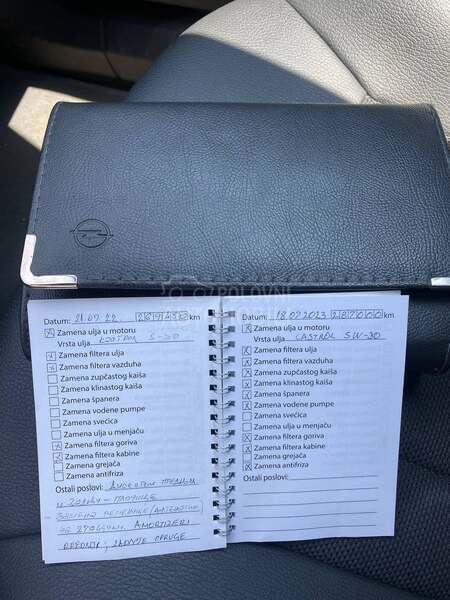 POLOVNI
Datum: 21.07.22 km
Zamena ulja u motoru
Vrsta ulja
Zamena filtera ulja
Zamena filtera vazduha
Zamena zupčastog kaiša
Zamena klinastog kaiša
Zamena španera
Zamena vodene pumpe
Zamena svećica
Zamena ulja u menjaču
Zamena filtera goriva
Zamena filtera kabine
Zamena grejača
Zamena antifriza
Ostali poslovi:
AMORTIZERI
ZADNJE OPRUGE
Datum: 18.07.2023 287000 km
Zamena ulja u motoru
Vrsta ulja CASTROL 5W-30
Zamena filtera ulja
Zamena filtera vazduha
Zamena zupčastog kaiša
Zamena klinastog kaiša
Zamena španera
Zamena vodene pumpe
Zamena svećica
Zamena ulja u menjaču
Zamena filtera goriva
Zamena filtera kabine
Zamena grejača
Zamena antifriza
Ostali poslovi: